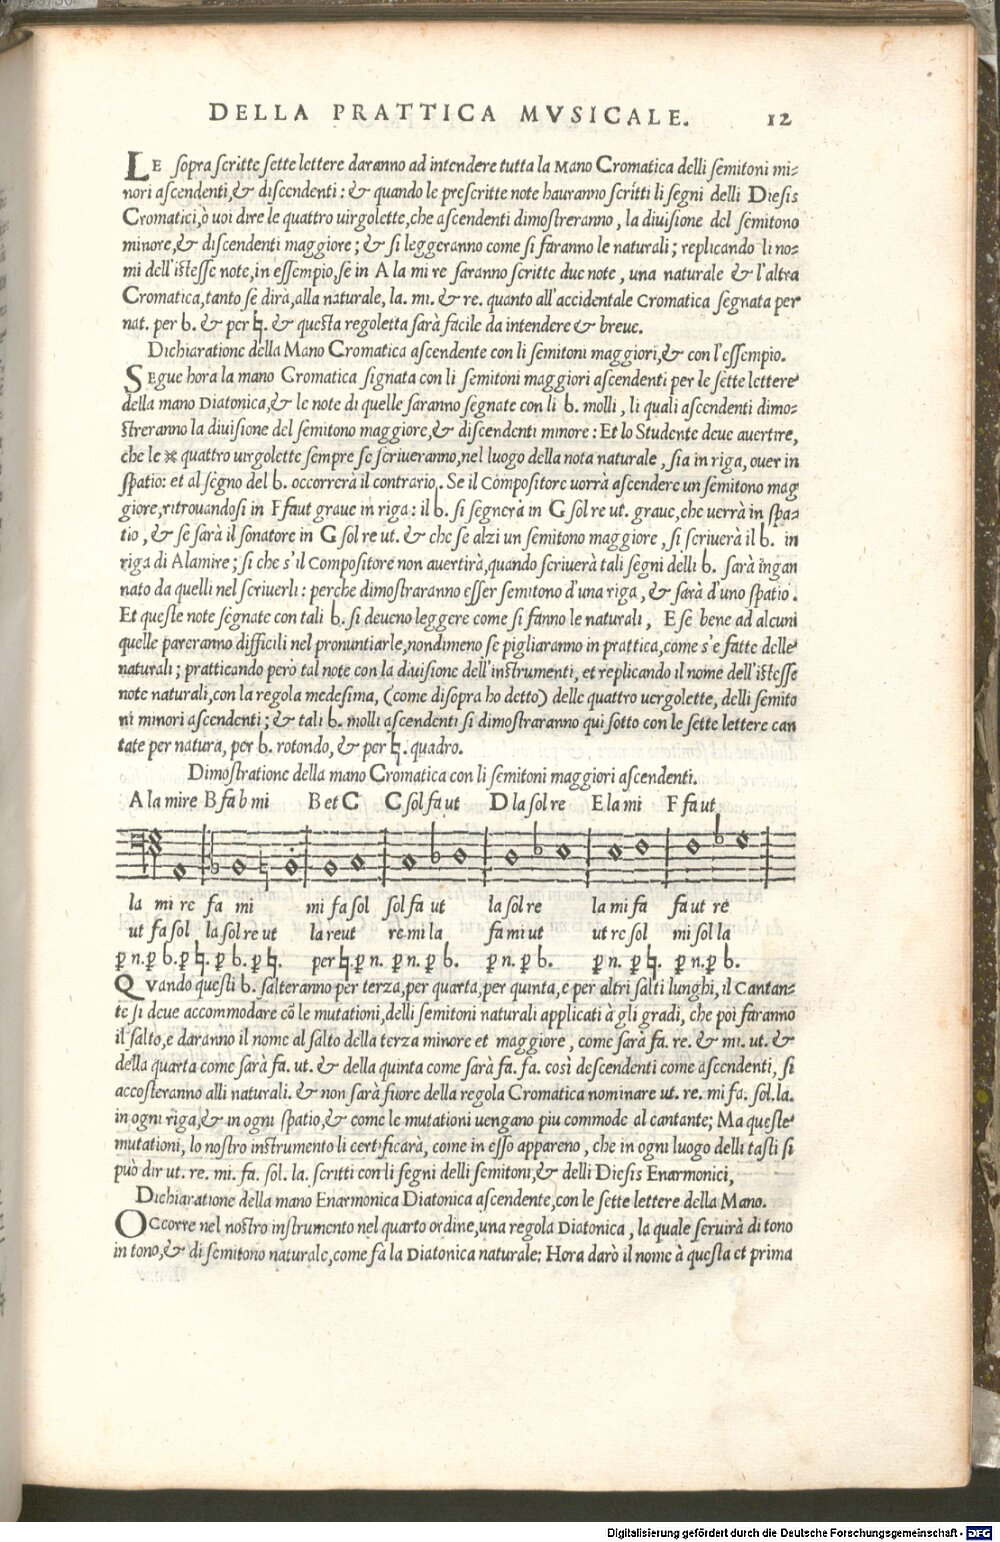 DELLA PRATTICA MVSICALE. 12
LE sopra scritte sette lettere daranno ad intendere tutta la Mano Cromatica delli semitoni mi-
nori ascendenti, & discendenti: & quando le prescritte note hauranno scritti li segni delli Diesis
Cromatici, ò uoi dire le quattro uirgolette, che ascendenti dimostreranno, la diuisione del semitono
minore, & discendenti maggiore; & si leggeranno come si faranno le naturali; replicando li no-
mi dell'istesse note, in essempio, se in A la mi re saranno scritte due note, una naturale & l'altra
Cromatica, tanto se dirà, alla naturale, la. mi. & re. quanto all'accidentale Cromatica segnata per
nat. per b. & per ♮. & questa regoletta sarà facile da intendere & breue.
Dichiaratione della Mano Cromatica ascendente con li semitoni maggiori, & con l'essempio.
SEgue hora la mano Cromatica signata con li semitoni maggiori ascendenti per le sette lettere
della mano Diatonica, & le note di quelle saranno segnate con li b. molli, li quali ascendenti dimo-
streranno la diuisione del semitono maggiore, & discendenti minore: Et lo Studente deue auertire,
che le ※ quattro uirgolette sempre se scriueranno, nel luogo della nota naturale, sia in riga, ouer in
spatio: et al segno del b. occorrerà il contrario. Se il Compositore uorrà ascendere un semitono mag
giore, ritrouandosi in F faut graue in riga: il b. si segnerà in G sol re ut. graue, che uerrà in spa-
tio, & se sarà il sonatore in G sol re ut. & che se alzi un semitono maggiore, si scriuerà il b. in
riga di Alamire; si che s'il Compositore non auertirà, quando scriuerà tali segni delli b. sarà ingan
nato da quelli nel scriuerli: perche dimostraranno esser semitono d'una riga, & sarà d'uno spatio.
Et queste note segnate con tali b. si deueno leggere come si fanno le naturali, E se bene ad alcuni
quelle pareranno difficili nel pronuntiarle, nondimeno se pigliaranno in prattica, come s'e fatte delle
naturali; pratticando però tal note con la diuisione dell'instrumenti, et replicando il nome dell'istesse
note naturali, con la regola medesima, (come disopra ho detto) delle quattro uergolette, delli semito
ni minori ascendenti; & tali b. molli ascendenti si dimostraranno qui sotto con le sette lettere can
tate per natura, per b. rotondo, & per ♮. quadro.
Dimostratione della mano Cromatica con li semitoni maggiori ascendenti.
A la mire B fa b mi B et C C sol fa ut D la sol re E la mi F fa ut
la mi re fa mi mi fa sol sol fa ut la sol re la mi fa fa ut re
ut fa sol la sol re ut la re ut re mi la fa mi ut ut re sol mi sol la
ꝑ n. ꝑ b. ꝑ ♮. ꝑ b. ꝑ ♮. per ♮. ꝑ n. ꝑ n. ꝑ b. ꝑ n. ꝑ b. ꝑ n. ꝑ ♮. ꝑ n. ꝑ b.
QVando questi b. salteranno per terza, per quarta, per quinta, e per altri salti lunghi, il Cantan-
te si deue accommodare cõ le mutationi, delli semitoni naturali applicati à gli gradi, che poi faranno
il salto, e daranno il nome al salto della terza minore et maggiore, come sarà fa. re. & mi. ut. &
della quarta come sarà fa. ut. & della quinta come sarà fa. fa. così descendenti come ascendenti, si
accosteranno alli naturali. & non sarà fuore della regola Cromatica nominare ut. re. mi fa. sol. la.
in ogni riga, & in ogni spatio, & come le mutationi uengano piu commode al cantante; Ma queste
mutationi, lo nostro instrumento li certificarà, come in esso appareno, che in ogni luogo delli tasti si
può dir ut. re. mi. fa. sol. la. scritti con li segni delli semitoni, & delli Diesis Enarmonici,
Dichiaratione della mano Enarmonica Diatonica ascendente, con le sette lettere della Mano.
OCcorre nel nostro instrumento nel quarto ordine, una regola Diatonica, la quale seruirà di tono
in tono, & di semitono naturale, come fà la Diatonica naturale: Hora darò il nome à questa et prima
Digitalisierung gefördert durch die Deutsche Forschungsgemeinschaft - DFG